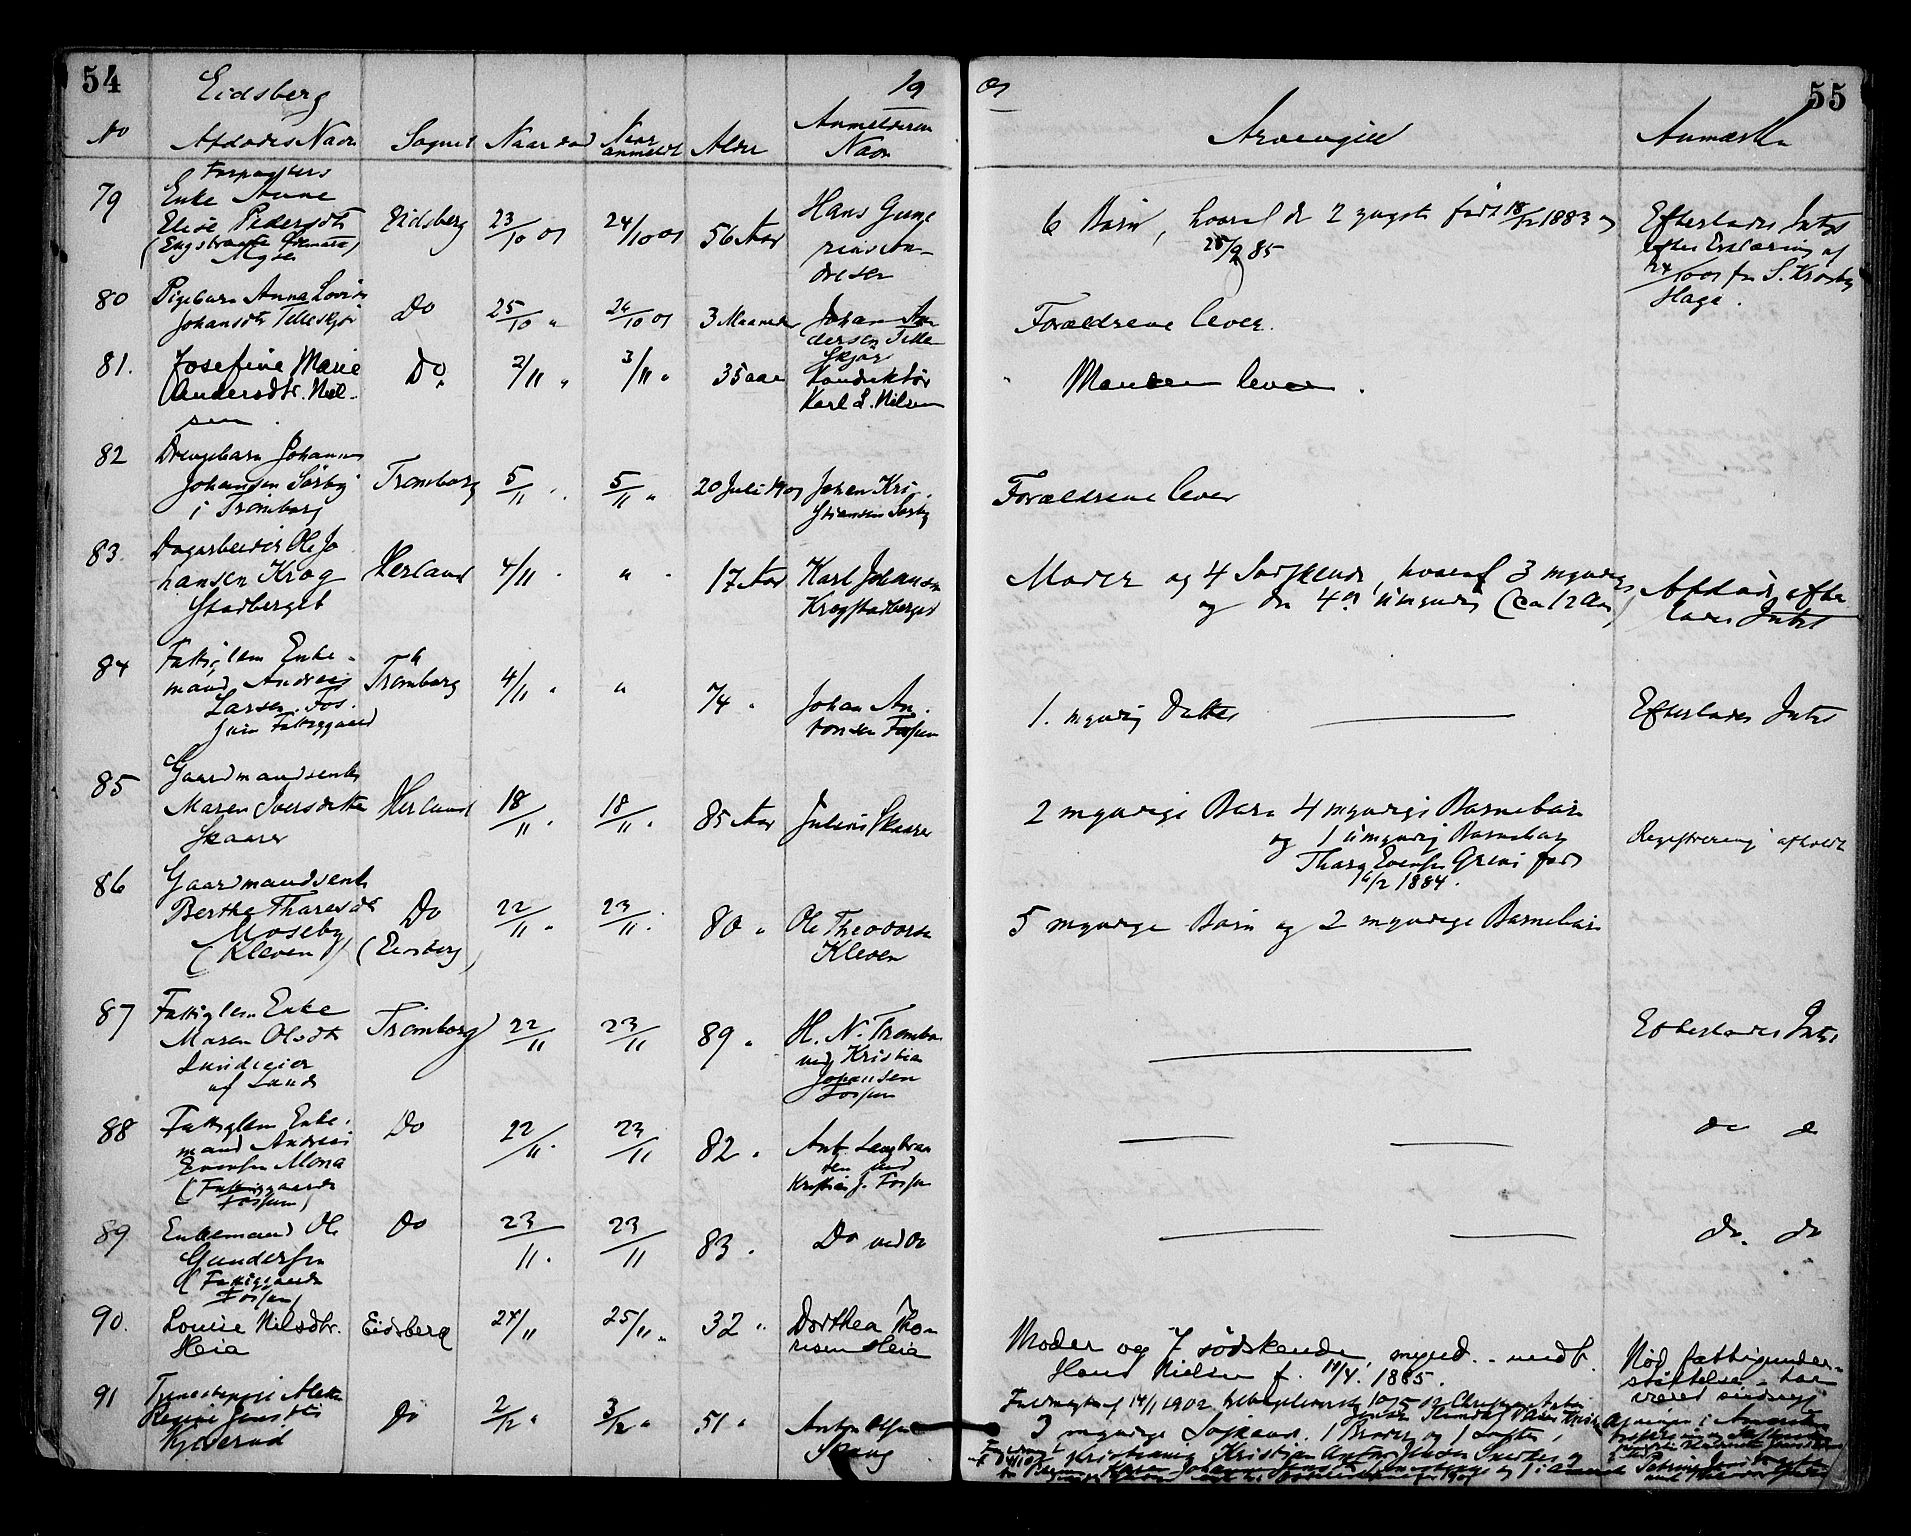 54
Eidsberg
19
01
55
No
Afdødes Navn
Sognet
Naar død
Naar anmeldt
Alder
Anmelderens Navn
Arvinger
Anmærkn
79
Enke Anne
Elise Pedersdtr
Mysen
Eidsberg
23/10 01
24/10 01
56 Aar
Hans Gune
rius An-
dresen
6 Børn, hvoraf de 2 yngste født 18/12 1883 og
25/9 85
Efterlader Intet
efter Erklæring af
24/10 01 fra S. Krosby
Haga.
80
Pigebarn Anna Lovise
Johansdtr
Do
25/10 "
26/10 01
3 Maaneder
Johan An
dersen Tille
skjær
Forældrene lever.
81.
Josefine Marie
Andersdtr. Niel-
sen.
Do
2/11 "
3/11 "
35 aar
Konduktør
Karl L. Nilsen
Manden lever.
82
Drengebarn Johannes
Johansen Sørby
i Trømborg
Trømborg
5/11 "
5/11 "
20 Juli 1901
Johan Kri
stiansen Sørby
Forældrene lever
83.
Dagarbeider Ole Jo
hansen Krog
Stadberget
Herland
4/11 "
" "
17 Aar
Karl Johansen
Krogstadberget
Moder og 4 Sødskende, hvoraf 3 myndige
og den 4de umyndig (ca 12 Aar)
Afdøde efter
lader Intet
84
Fattiglem Enke-
mand Andreas
Larsen Fos.
Trømborg
4/11 "
"
74 "
Johan An
tonsen Fossum
1. myndig Datter
Efterlader Intet
85
Gaardmandsenke
Maren Iversdatter
Skaarer
Herland
18/11 "
18/11 "
85 Aar
Julius Skaarer
2 myndige Børn 4 myndige Børnebørn
og 1 umyndig Barnebarn
Evensen Greni født
16/2 1884.
Registrering afholdt
86
Gaardmandsenke
Berthe Tharesdtr
Moseby
(Kleven)
Do
(Eidsberg)
22/11 "
23/11 "
80 "
Ole Theodorsen
Kleven
5 myndige Børn og 2 myndige Børnebørn
87
Fattiglem Enke
Maren Olsdtr
Lundeier
af Lund
Trømborg
22/11
23/11
89 "
H. N. Trømborg
ved Kristian
Johansen
Fossum
Efterlader Intet
88
Fattiglem Enke-
mand Andreas
Evensen Mona
(Fattiggaarden
Fossum)
Do
22/11 "
23/11
82 "
Ant. Langbraa
ten ved
Kristian J. Fossum
do do
89
Enkemand Ole
Gundersen
(Fattiggaarden
Fossum)
Do
23/11 "
23/11
83 "
Do ved Do
do. do
90.
Louise Nilsdtr.
Heia
Eidsberg
24/11
25/11 "
32 "
Dorthea Tho-
resen Heia
Moder og 7 sødskende, mynd. undt.
Hans Nielsen f. 19/4. 1885.
Nød fattigunder-
støttelse - har
været sindssyg
91
Tjenestepige
Jensdtr
Do
2/12 "
3/12 "
51 "
Anton Olsen
Skaug
3 myndige Søskend. 1 Broder og 1 Søster,